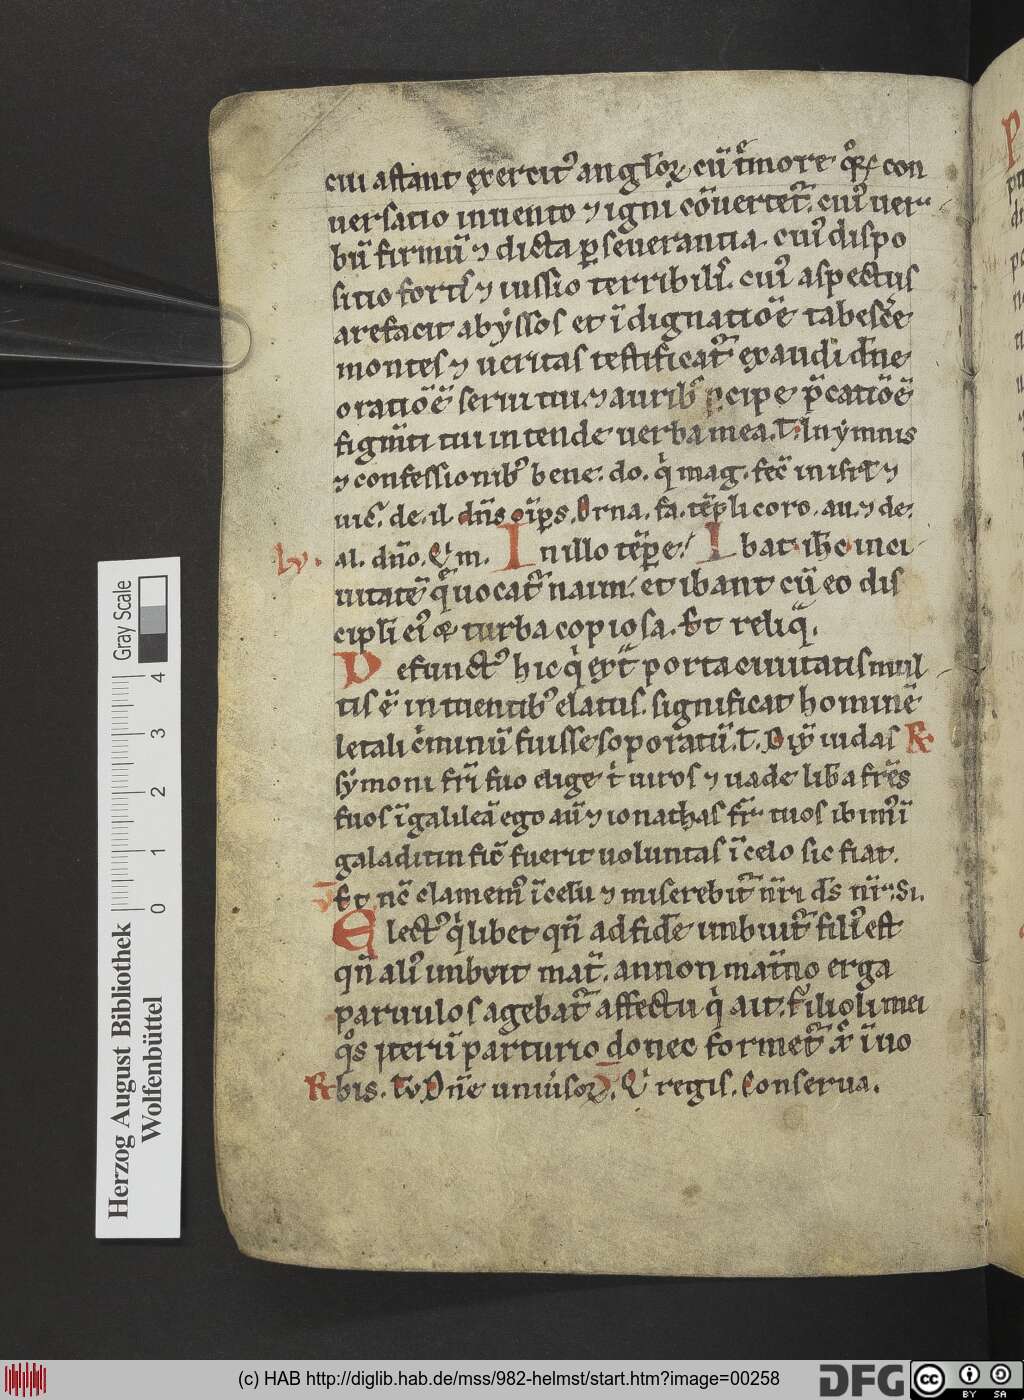 cui aſtant exercitꝰ angl̄oꝝ cū t̓more qͦꝝ con
uerſatio in uento ⁊ igni cōuertet᷑. cuiꝰ uer
bū firmū ⁊ dicta ꝑſeuerantia. cuiꝰ diſpo
ſitio fortiſ ⁊ iuſſio terribiliſ. cuiꝰ aſpectus
arefacit abyſſos et īdignatiōe tabeſc̓e
montes ⁊ ueritas teſtificat᷑ exaudi dn̄e
oratiōē ſerui tui. ⁊ auribꝰ ꝑcipe p̄catiōē
figm̄ti tui intende uerba mea. T. In ymnis
⁊ confeſſionibꝰ bene. do. qͥ mag. fec̄ in iſrl̄ ⁊
uic̄. de. il. dn̄s oīps. Orna. fa. tēpli coro. au. ⁊ de.
lv. al. dn̄o. Eͮ m. In illo tēpe. Ibat ih̄c in ci
uitatē q̄ uocat᷑ naim. et ibant cū eo diſ
cipl̄i eiꝰ ⁊ turba copioſa. Et reliq̄.
Defunctꝰ hic qͥ ext̄ porta ciuitatis mul
tis ē intuentibꝰ elatus. ſignificat hominē
letali c̓minū fuiſſe ſoporatū. T. Dix̄ iudas R
ſymoni fr̄i ſuo elige tͥ uiros ⁊ uade lib̄a fr̄es
tuos ī galileā ego aū ⁊ ionathas fr̄ tuos ibimꝰ ī
galaditin ſic̄ fuerit uoluntas ī celo ſic fiat.
V Et nc̄ clamemꝰ ī celū ⁊ miſerebit᷑ nr̄i ds̄ nr̄. Si.
Electꝰ qͥlibet qn̄ ad fidē imbuit᷑ filiꝰ eſt
qn̄ aliꝰ imbuit mat̄. an non mat̄no erga
paruulos agebat᷑ affectu qͥ ait. filioli mei
qͦs iterū parturio donec formet᷑ xp̄c ī uo
R bis. Tv Dn̄e uniuiſoꝝ. Eͮ regiſ. Conſerua.
Herzog August Bibliothek
Wolfenbüttel
0 1 2 3 4
Gray Scale
(c) HAB http://diglib.hab.de/mss/982-helmst/start.htm?image=00258
DFG
cc BY SA